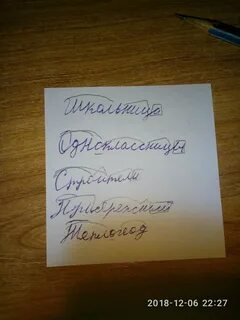 Школьница
Одноклассница
Строители
Прибрежский
Теплоход
2018-12-06 22:27